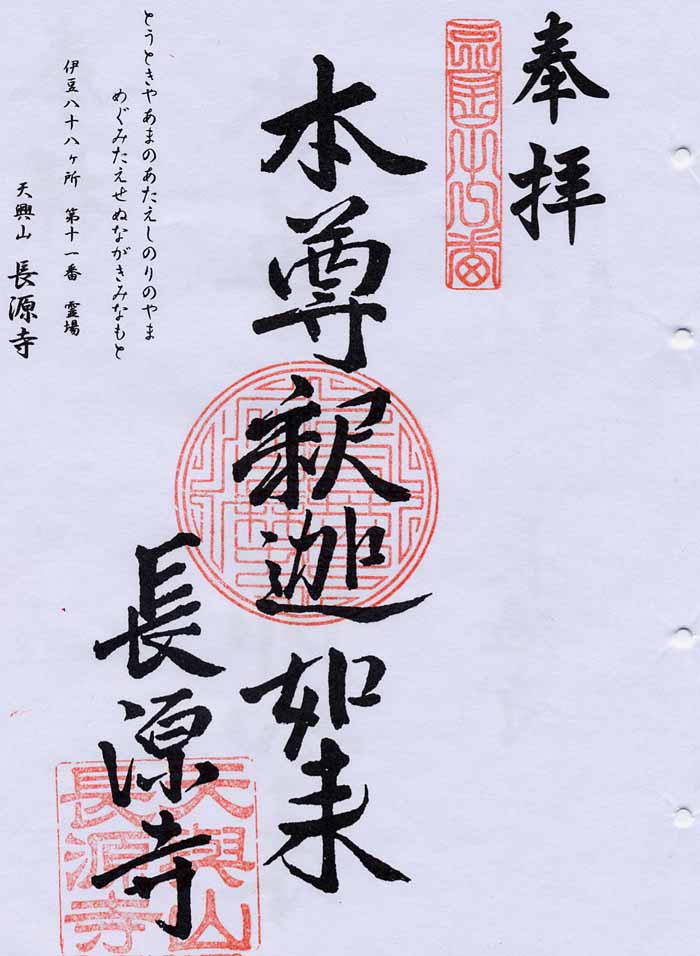 奉拝
本尊釈迦如来
長源寺
天興山
長源寺
とうときやあまのあたえしのりのやま
めぐみたえせぬながきみなもと
伊豆八十八ヶ所 第十一番 霊場
天興山 長源寺